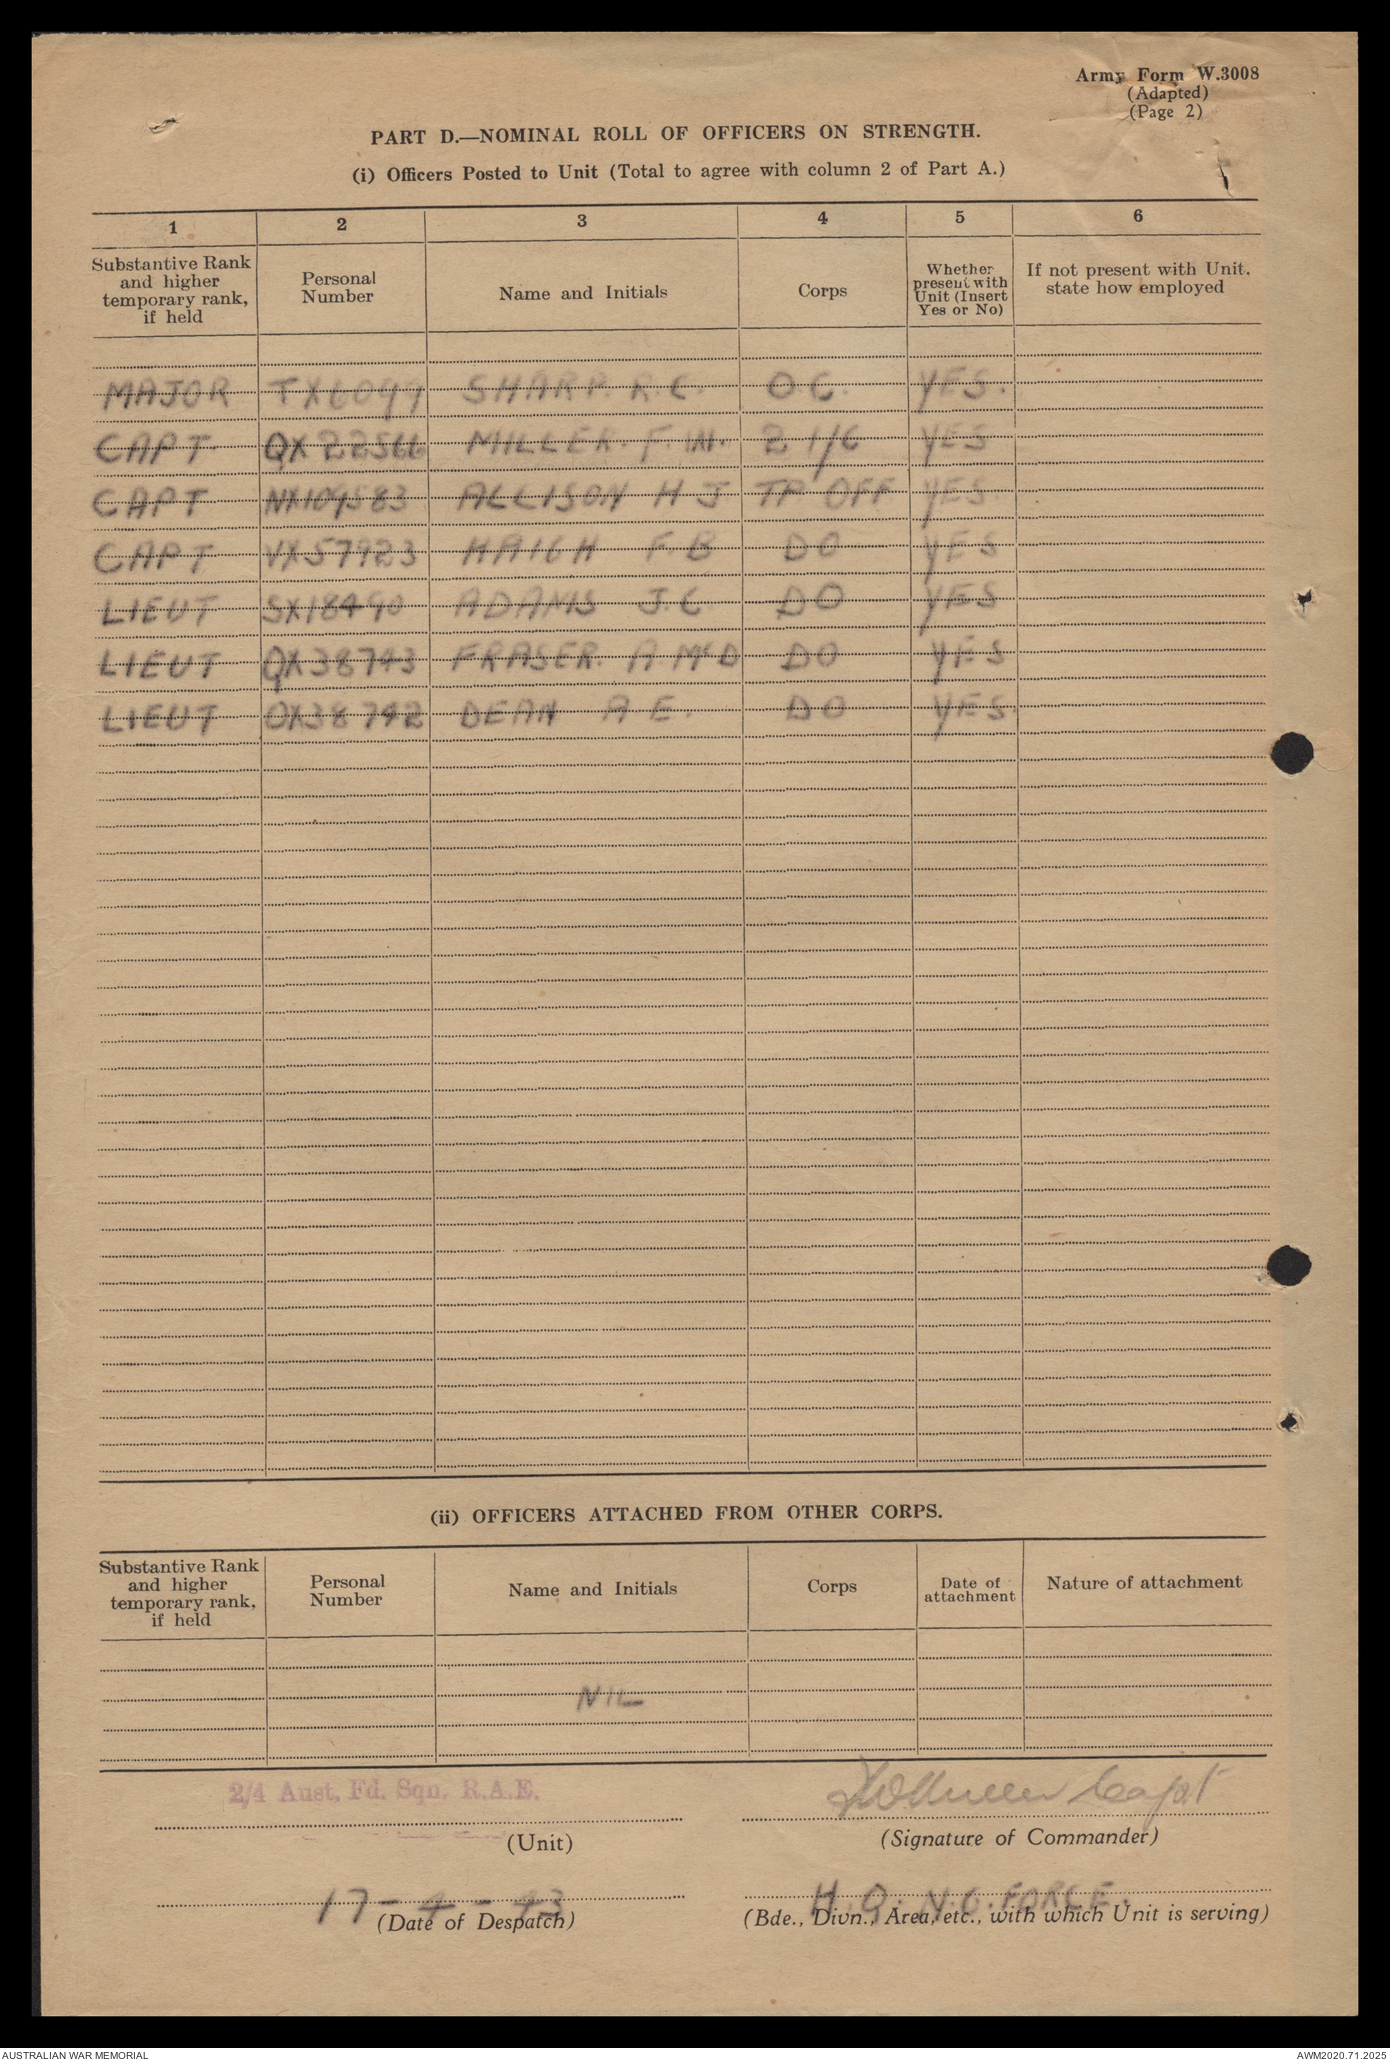 Army Form W.3008
(Adapted)
(Page 2)
PART D.—NOMINAL ROLL OF OFFICERS ON STRENGTH.
(i) Officers Posted to Unit (Total to agree with column 2 of Part A.)
1 2 3 4 5 6
Substantive Rank and higher temporary rank, if held
Personal Number
Name and Initials
Corps
Whether present with Unit (Insert Yes or No)
If not present with Unit. state how employed
MAJOR TX6099 SHARP. R.C. O.C. YES.
CAPT QX22566 MILLER. F.W. 2 I/C YES
CAPT NX109583 ALLISON H J TP OFF YES.
CAPT VX57923 HAIGH F B DO YES
LIEUT SX18490 ADAMS J.C DO YES
LIEUT QX38743 FRASER. A McD DO YES
LIEUT QX38742 DEAN A E. DO YES.
(ii) OFFICERS ATTACHED FROM OTHER CORPS.
Substantive Rank and higher temporary rank, if held
Personal Number
Name and Initials
Corps
Date of attachment
Nature of attachment
NIL
2/4 Aust. Fd. Sqn. R.A.E.
(Unit)
FWMiller Capt
(Signature of Commander)
17-4-43
(Date of Despatch)
H.Q. N.G. FORCE.
(Bde., Divn., Area, etc., with which Unit is serving)
AUSTRALIAN WAR MEMORIAL
AWM2020.71.2025